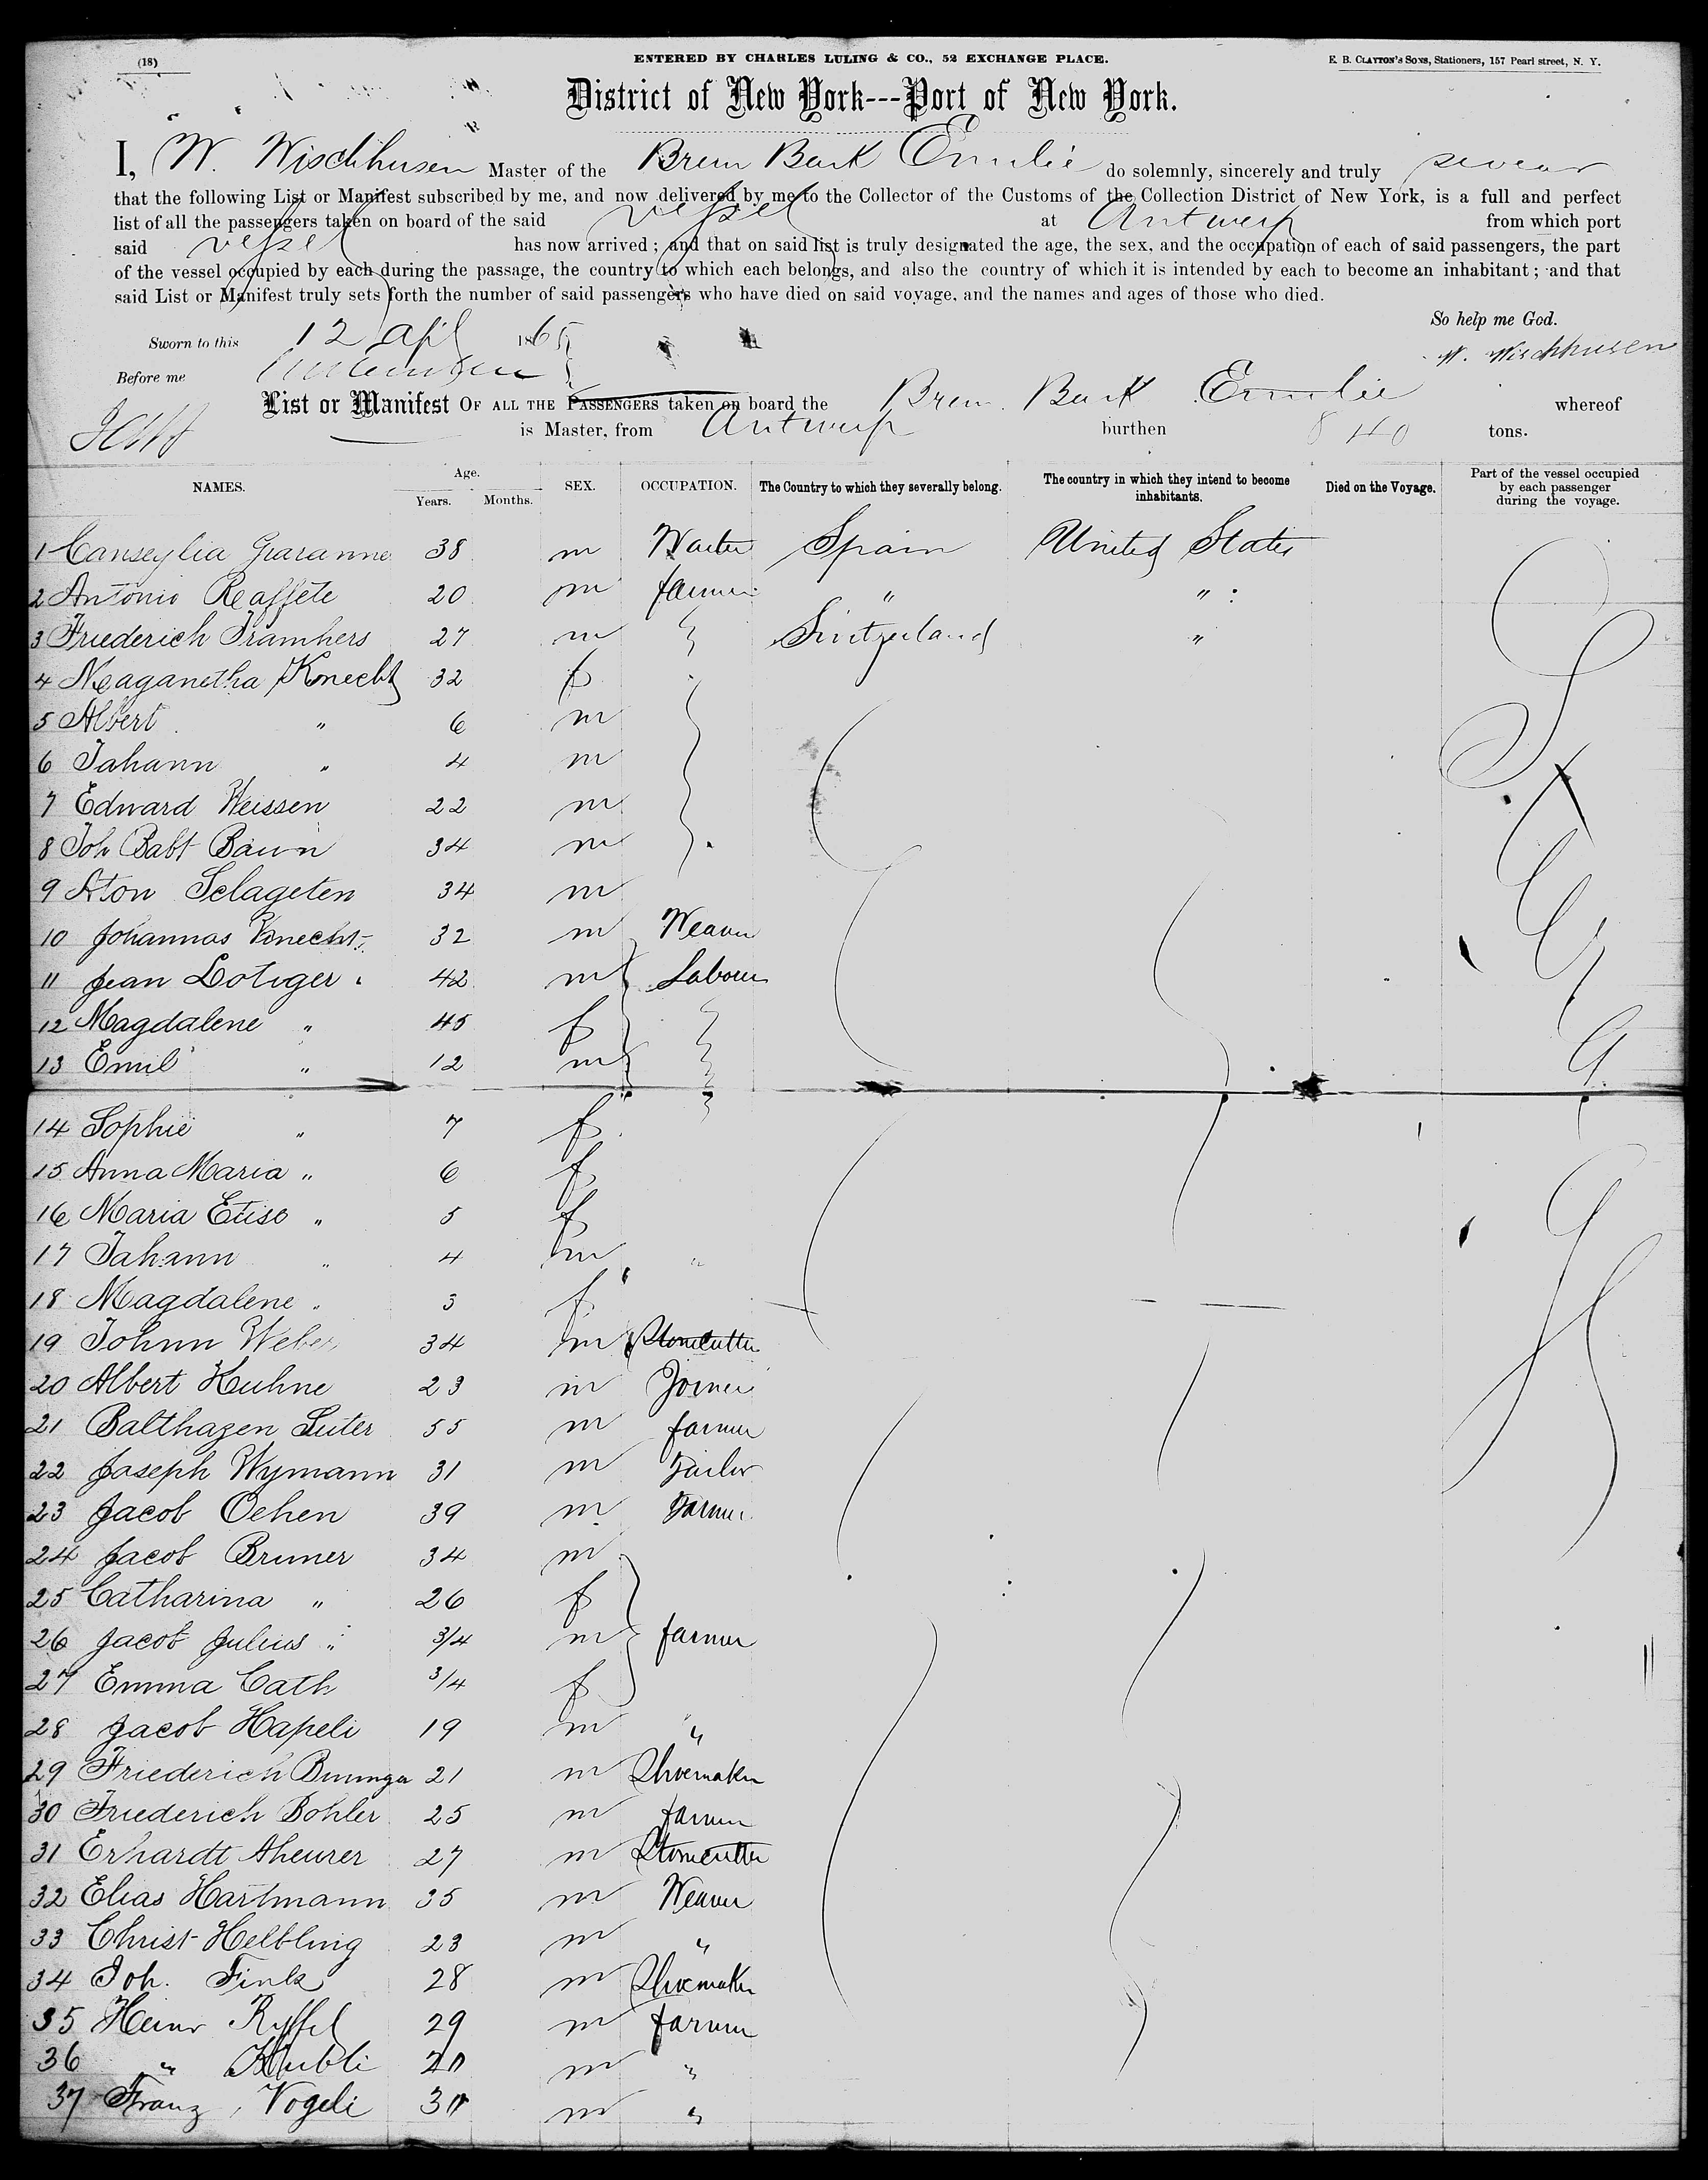 (18)
ENTERED BY CHARLES LULING & CO., 52 EXCHANGE PLACE.
E. B. CLAYTON'S SONS, Stationers, 157 Pearl street, N. Y.
District of New York---Port of New York.
I, W. Wischhusen Master of the Brem Bark Emilie do solemnly, sincerely and truly swear
that the following List or Manifest subscribed by me, and now delivered by me to the Collector of the Customs of the Collection District of New York, is a full and perfect
list of all the passengers taken on board of the said vessel at Antwerp from which port
said vessel has now arrived; and that on said list is truly designated the age, the sex, and the occupation of each of said passengers, the part
of the vessel occupied by each during the passage, the country to which each belongs, and also the country of which it is intended by each to become an inhabitant; and that
said List or Manifest truly sets forth the number of said passengers who have died on said voyage, and the names and ages of those who died.
So help me God.
Sworn to this 12 Apl 1865
W. Wischhusen
Before me
List or Manifest OF ALL THE PASSENGERS taken on board the Brem. Bark Emilie whereof
is Master, from Antwerp burthen 840 tons.
NAMES. Age. Years. Months. SEX. OCCUPATION. The Country to which they severally belong. The country in which they intend to become inhabitants. Died on the Voyage. Part of the vessel occupied by each passenger during the voyage.
1 Canseylia Giaranne 38 m Waiter Spain United States
2 Antonio Reaffete 20 m farmer " "
3 Friederich Tramhers 27 m Switzerland "
4 Neaganetha Knecht 32 f
5 Albert " 6 m
6 Johann " 4 m
7 Edward Weissen 22 m
8 Joh Babt Baun 34 m
9 Aton Selageten 34 m
10 Johannas Knecht 32 m Weaver
11 Jean Lotiger 42 m Labour
12 Magdalene " 45 f
13 Emil " 12 m
14 Sophie " 7 f
15 Anna Maria " 6 f
16 Maria Elise " 5 f
17 Johann " 4 m "
18 Magdalene " 3 f
19 Johnn Weber 34 m Stonecutter
20 Albert Kuhne 23 m Joiner
21 Balthazen Suter 55 m farmer
22 Joseph Wymann 31 m Tailor
23 Jacob Oehen 39 m Farmer
24 Jacob Bruner 34 m
25 Catharina " 26 f
26 Jacob Julius " 3/4 m farmer
27 Emma Cath 3/4 f
28 Jacob Hapeli 19 m "
29 Friederich Bumnga 21 m Shoemaker
30 Friederich Bohler 25 m farmer
31 Erhardt Aheurer 27 m Stonecutter
32 Elias Hartmann 35 m Weaver
33 Christ Helbling 23 m "
34 Joh. Fink 28 m Shoemaker
35 Heinr Ryffel 29 m farmer
36 " Kubli 20 m "
37 Franz Vogeli 30 m "